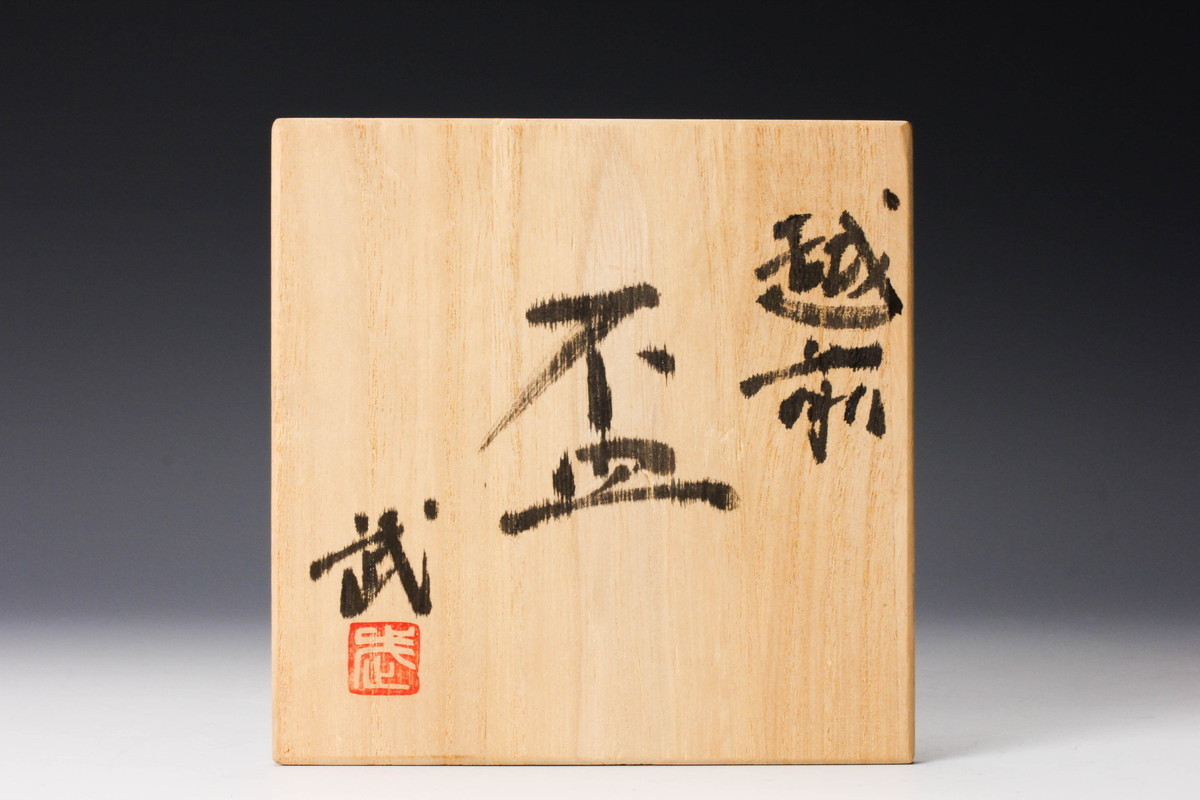 越前
盃
武
武